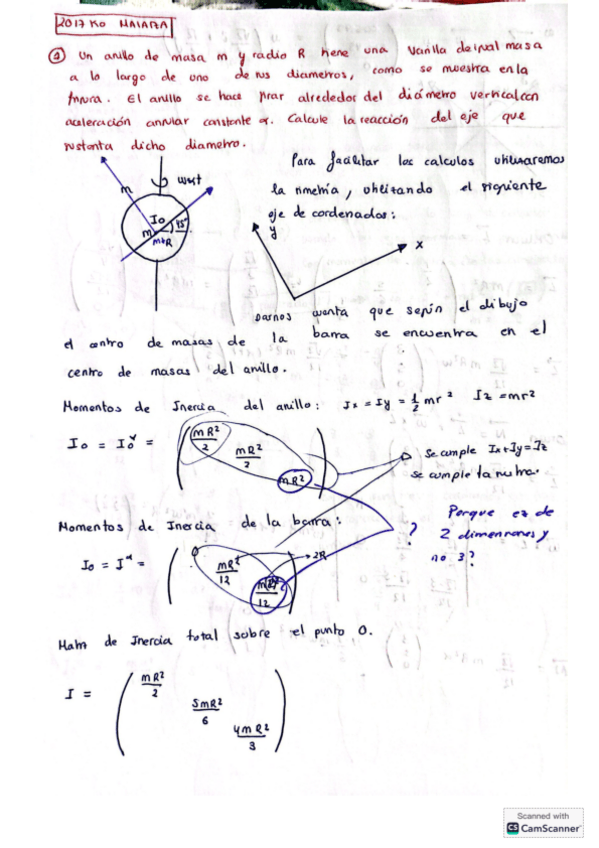 2017 KO MAIATZA
① Un anillo de masa m y radio R tiene una varilla de igual masa
a lo largo de uno de sus diametros, como se muestra en la
figura. El anillo se hace girar alrededor del diámetro vertical con
aceleración angular constante α. Calcule la reacción del eje que
sustenta dicho diametro.
Para facilitar los calculos utilizaremos
la simetría, utilizando el siguiente
eje de cordenadas:
m
wext
Io
m
45°
m+R
y
x
Darnos cuenta que según el dibujo
el centro de masas de la barra se encuentra en el
centro de masas del anillo.
Momentos de Inercia del anillo: Ix = Iy = 1/2 mr² Iz = mr²
Io = Io = ( mR²/2 mR²/2 mR² )
Se cumple Ix+Iy=Iz
se cumple
Momentos de Inercia de la barra:
? Porque es de
2 dimensiones y
no 3?
Io = I = ( 0 mR²/12 /12 )
2R
de Inercia total sobre el punto O.
I = ( mR²/2 5mR²/6 4mR²/3 )
Scanned with
CS CamScanner